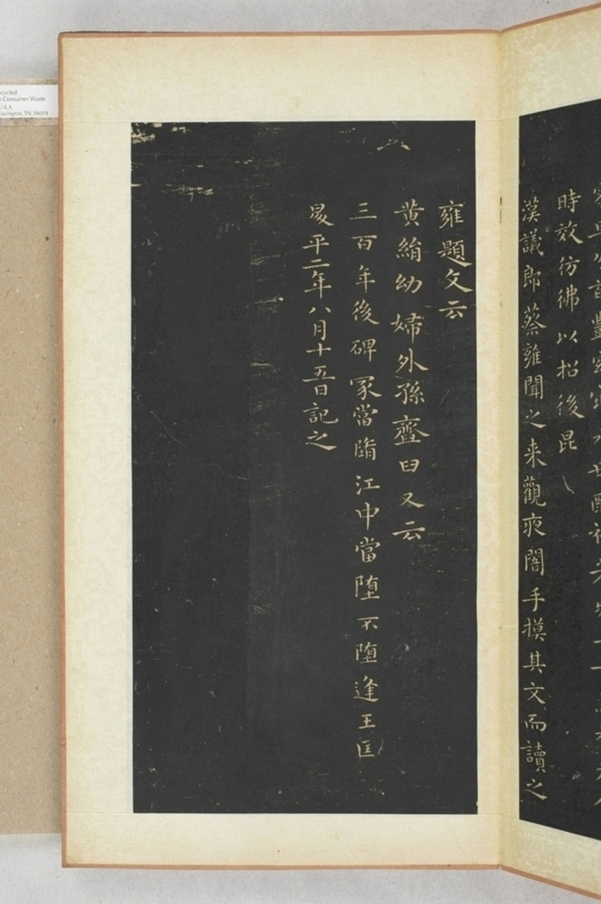 時效彷彿以招後昆
漢議郎蔡雍聞之来觀夜闇手摸其文而讀之
雍題文云
黄絹幼婦外孫齏臼又云
三百年後碑冢當墮江中當墮不墮逢王匡
昇平二年八月十五日記之
Consumer Waste
U.S.A.